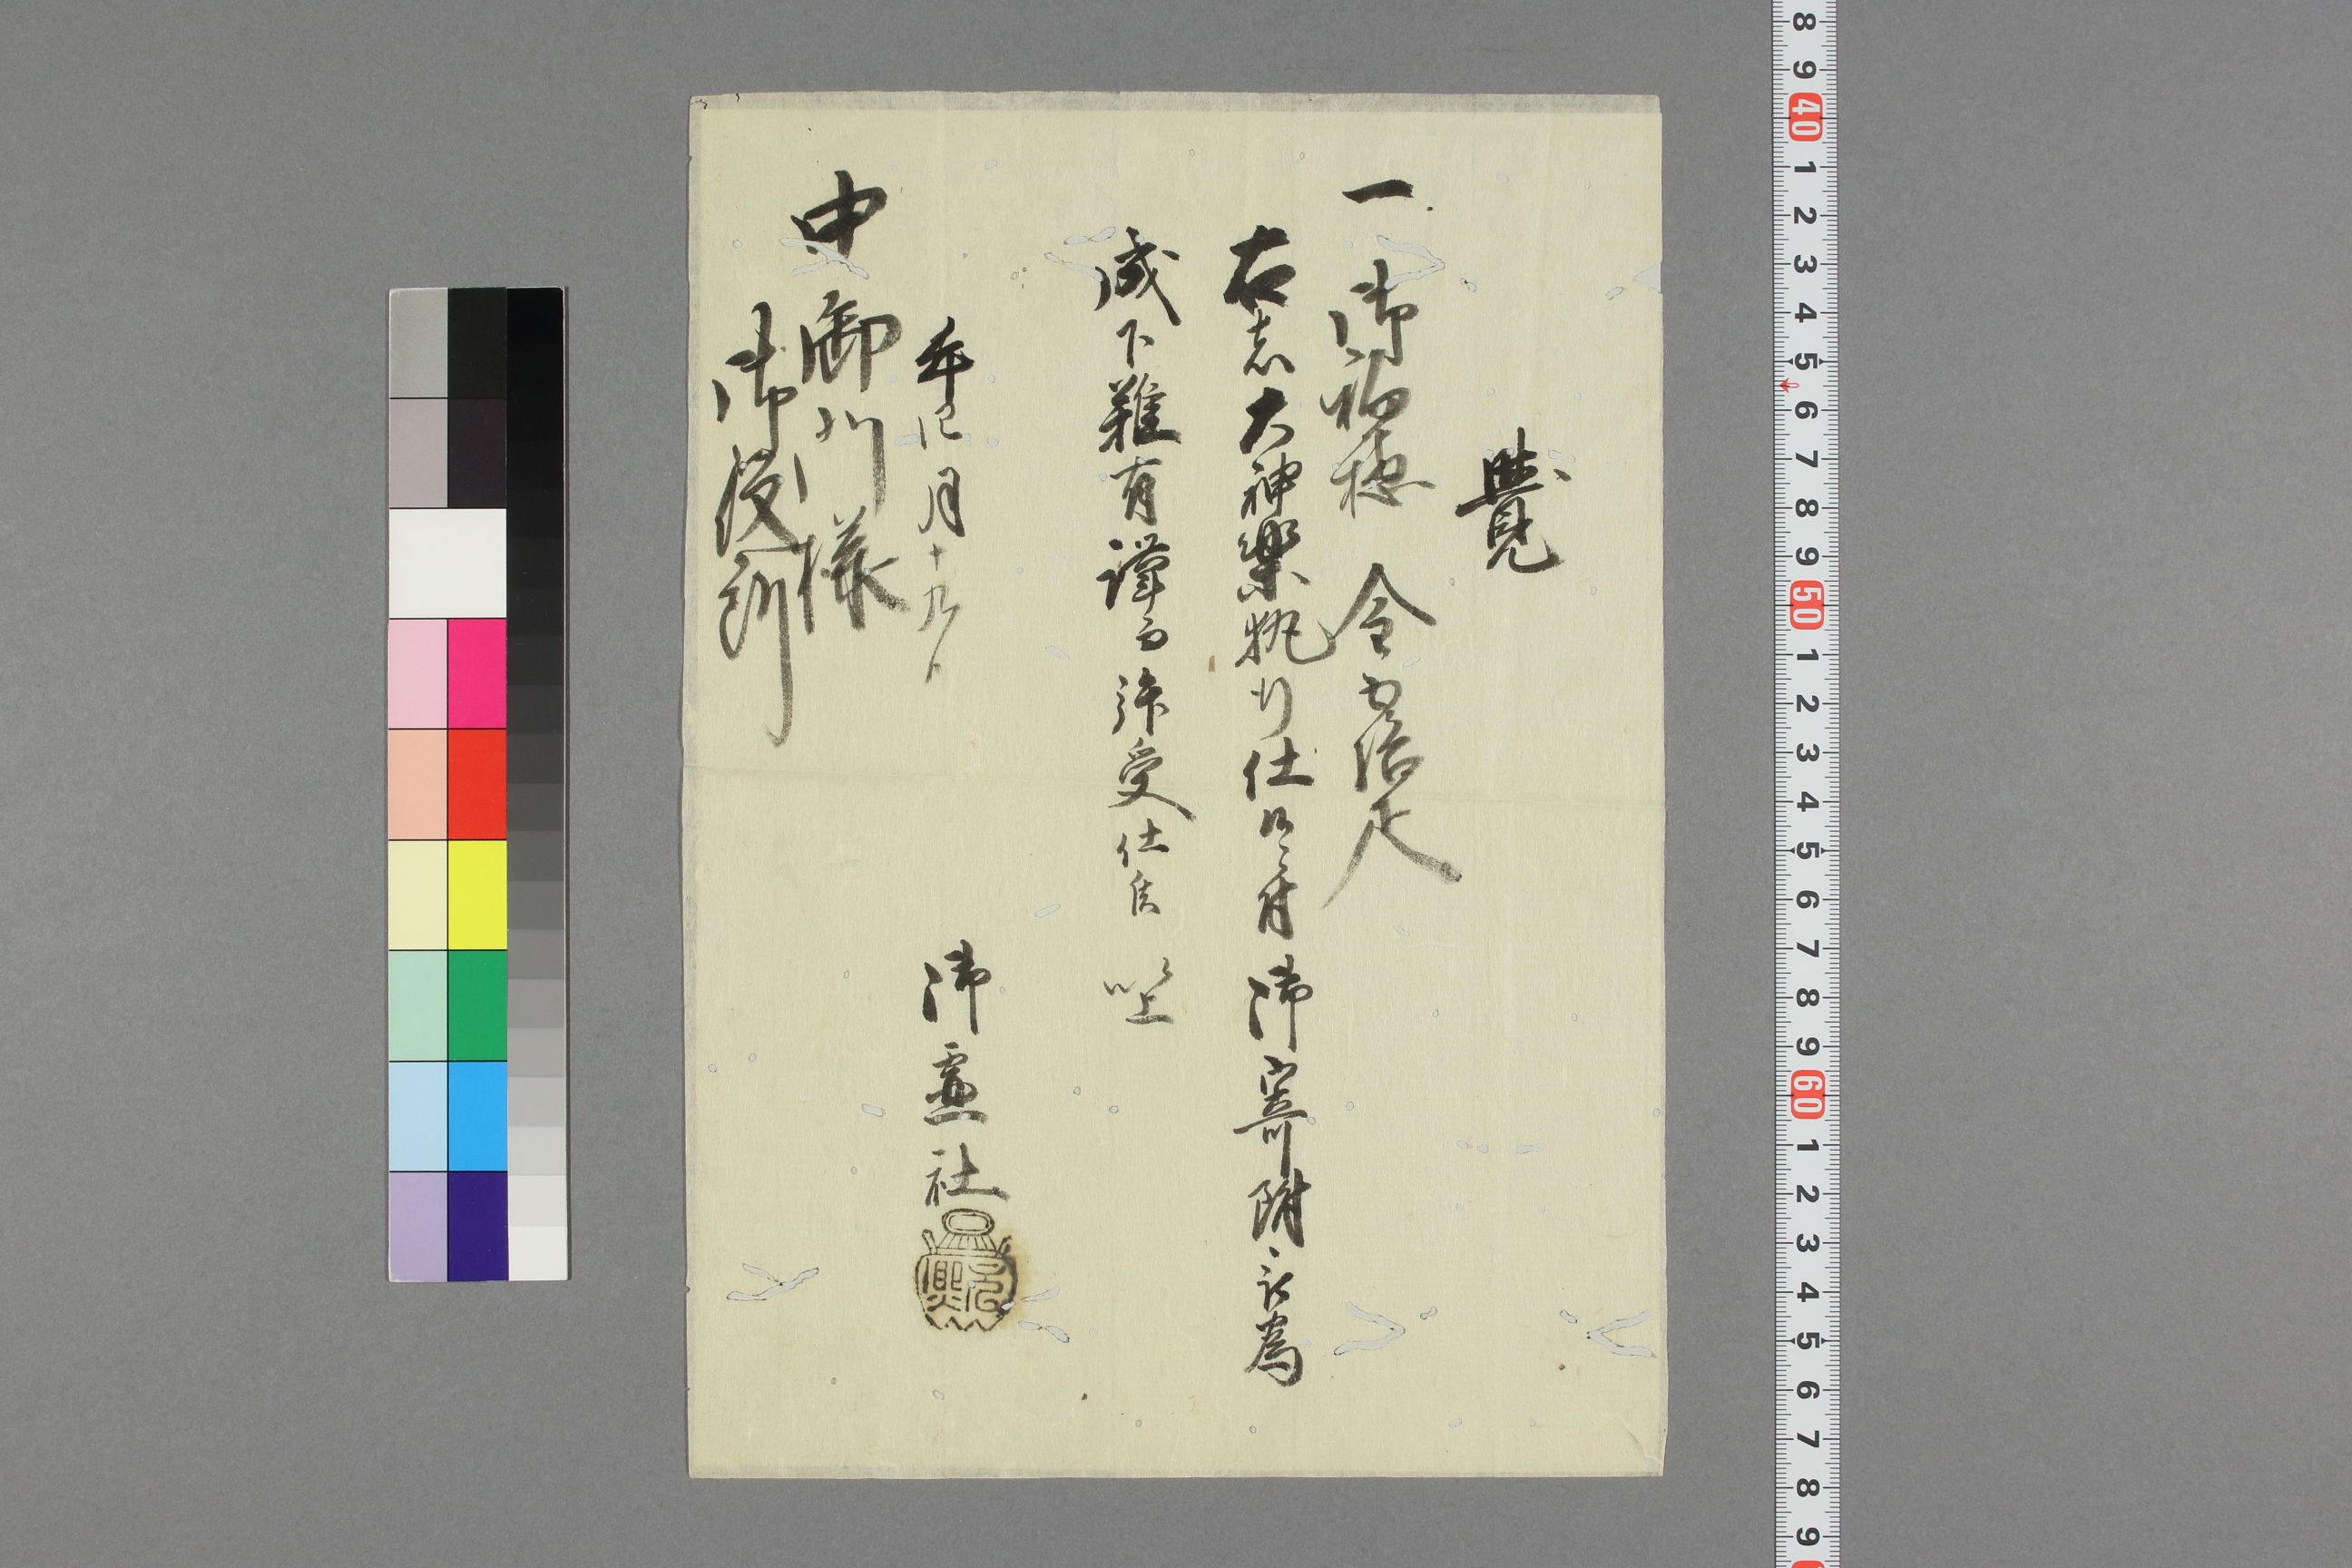 覺
一 御初穂 金百疋
右者大神樂執行仕候ニ付御寄附被為
成下難有謹而拝受仕候以上
年 巳月十九日
御靈社
中御川様
御役所
8 9 40 1 2 3 4 5 6 7 8 9 50 1 2 3 4 5 6 7 8 9 60 1 2 3 4 5 6 7 8 9